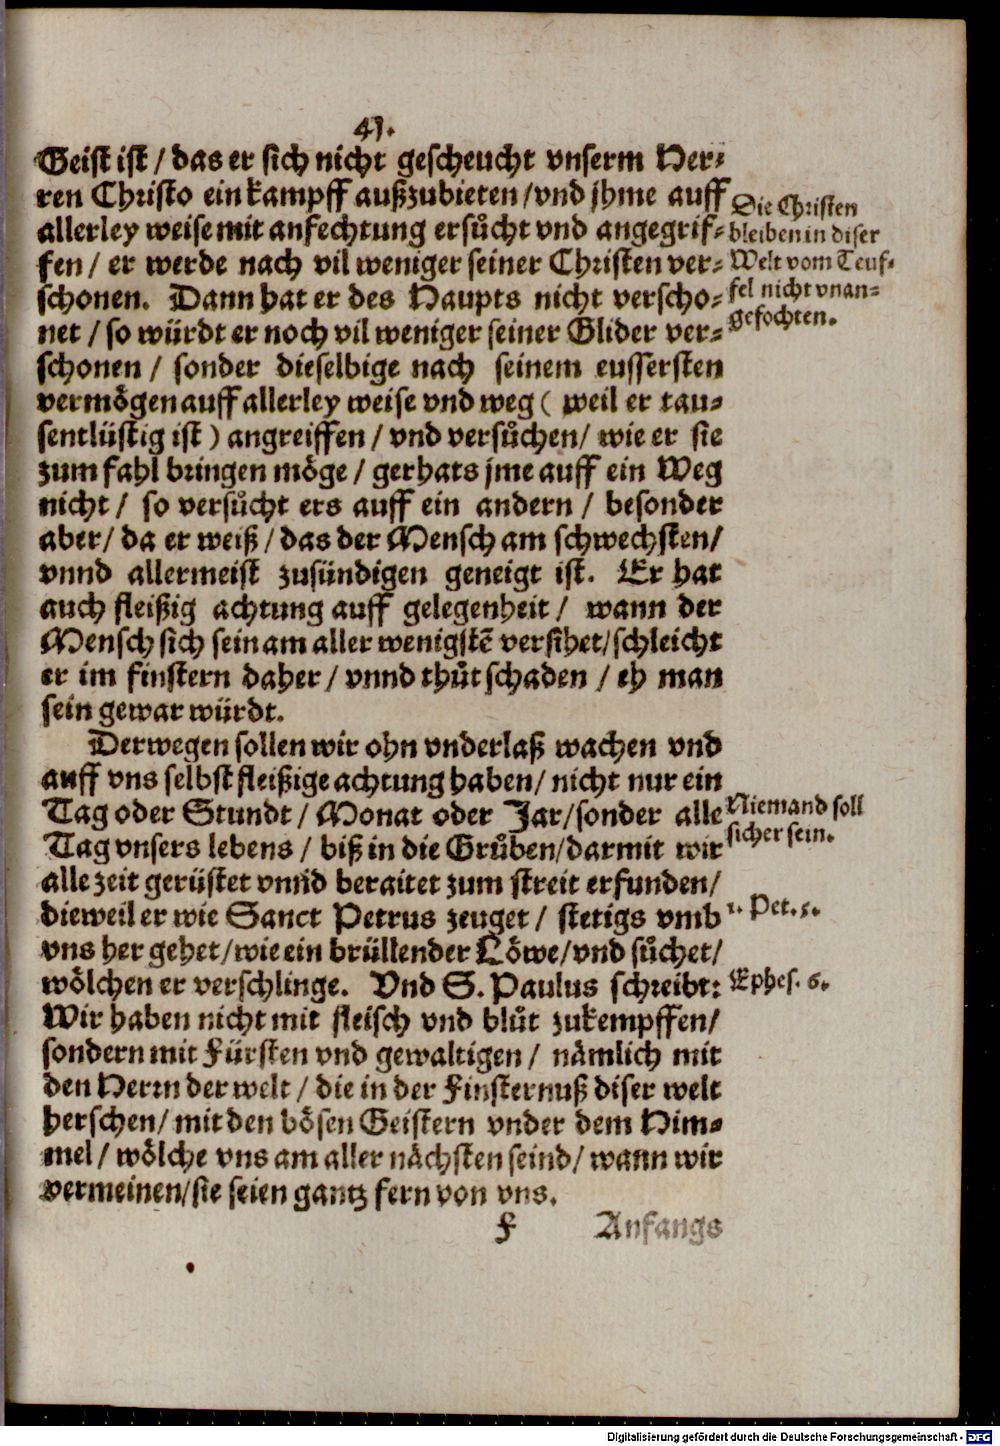 41.
Geist ist / das er sich nicht gescheucht vnserm Her-
ren Christo ein kampff außzubieten / vnd jhme auff
allerley weise mit anfechtung ersůcht vnd angegrif-
fen / er werde nach vil weniger seiner Christen ver-
schonen. Dann hat er des Haupts nicht verscho-
net / so würdt er noch vil weniger seiner Glider ver-
schonen / sonder dieselbige nach seinem eussersten
vermögen auff allerley weise vnd weg ( weil er tau-
sentlüstig ist ) angreiffen / vnd versůchen / wie er sie
zum fahl bringen möge / gerhats jme auff ein Weg
nicht / so versůcht ers auff ein andern / besonder
aber / da er weiß / das der Mensch am schwechsten /
vnnd allermeist zusündigen geneigt ist. Er hat
auch fleißig achtung auff gelegenheit / wann der
Mensch sich sein am aller wenigstẽ versihet / schleicht
er im finstern daher / vnnd thůt schaden / eh man
sein gewar würdt.
Die Christen
bleiben in diser
Welt vom Teuf-
fel nicht vnan-
gefochten.
Derwegen sollen wir ohn vnderlaß wachen vnd
auff vns selbst fleißige achtung haben / nicht nur ein
Tag oder Stundt / Monat oder Jar / sonder alle
Tag vnsers lebens / biß in die Grůben / darmit wir
alle zeit gerüstet vnnd beraitet zum streit erfunden /
dieweil er wie Sanct Petrus zeuget / stetigs vmb
vns her gehet / wie ein brüllender Löwe / vnd sůchet /
wölchen er verschlinge. Vnd S. Paulus schreibt:
Wir haben nicht mit fleisch vnd blůt zukempffen /
sondern mit Fürsten vnd gewaltigen / nämlich mit
den Herrn der welt / die in der Finsternuß diser welt
herschen / mit den bösen Geistern vnder dem Him-
mel / wölche vns am aller nächsten seind / wann wir
vermeinen / sie seien gantz fern von vns.
Niemand soll
sicher sein.
1. Pet. 5.
Ephes. 6.
F Anfangs
Digitalisierung gefördert durch die Deutsche Forschungsgemeinschaft - DFG